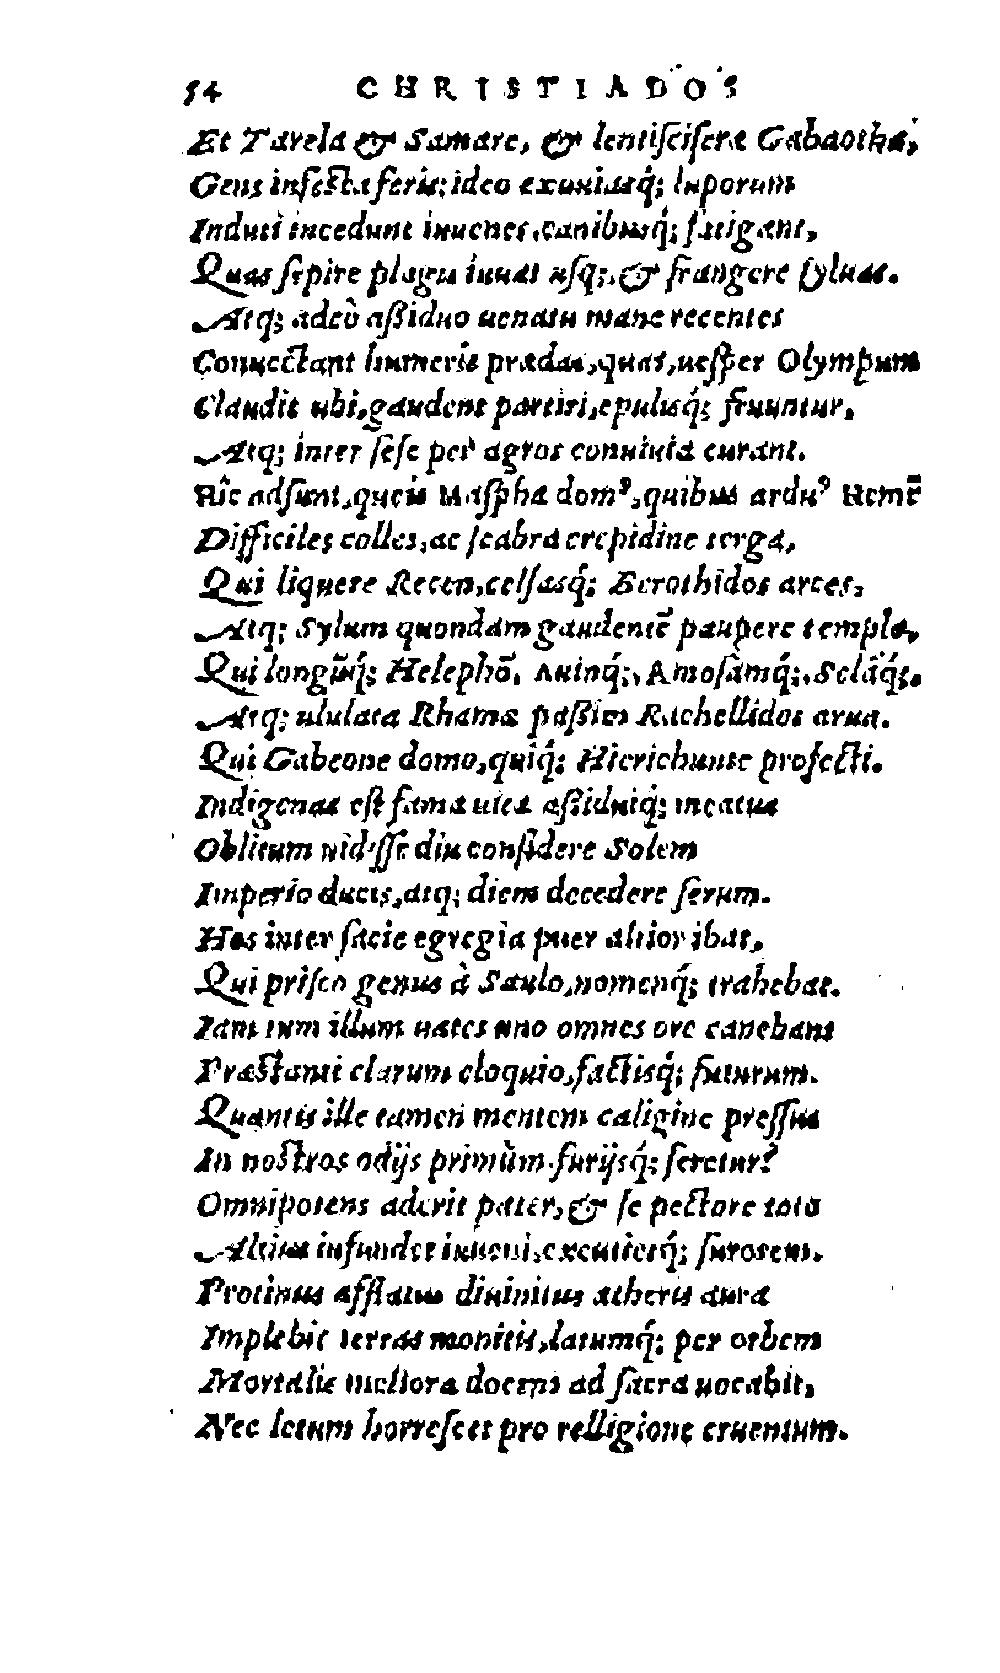 54 CHRISTIADOS
Et Tarela & Samare, & lentiſciferæ Gabaotha,
Gens infeſta feris; ideo exuuiasq́; luporum
Induti incedunt iuuenes, canibusq́; fatigant,
Quas ſepire plagis iuuat uſq;, & frangere ſyluas.
Atq; adeò aſsiduo uenatu mane recentes
Conuectant humeris prædas, quas, ueſper Olympum
Claudit ubi, gaudent partiri, epulisq́; fruuntur,
Atq; inter ſeſe per agros conuiuia curant.
Hîc adſunt, queis Maſpha domꝰ, quibus arduꝰ Hemẽ
Difficiles colles, ac ſcabra crepidine terga,
Qui liquere Recen, celſasq́; Berothidos arces,
Atq; Sylum quondam gaudentẽ paupere templo,
Qui longũq́; Helephõ, Auinq́;, Amoſâmq́;, Selãq́;.
Atq; ululata Rhamæ paſsim Rachellidos arua.
Qui Gabeone domo, quiq́; Hierichunte profecti.
Indigenas eſt fama uiæ aſsiduiq́; meatus
Oblitum uidiſſe diu conſidere Solem
Imperio ducis, atq; diem decedere ſerum.
Hos inter facie egregia puer altior ibat,
Qui priſco genus à Saulo, nomenq́; trahebat.
Iam tum illum uates uno omnes ore canebant
Præſtanti clarum eloquio, factisq́; futurum.
Quantis ille tamen mentem caligine preſſus
In noſtros odijs primùm furijsq́; feretur?
Omnipotens aderit pater, & ſe pectore toto
Altius infundet iuueni, excutietq́; furorem.
Protinus afflatus diuinitus ætheris aura
Implebit terras monitis, latumq́; per orbem
Mortalis meliora docens ad ſacra uocabit,
Nec letum horreſcet pro relligione cruentum.